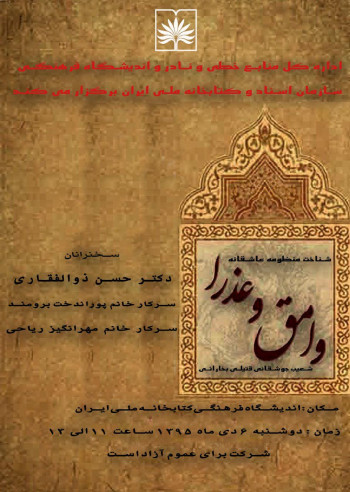 اداره کل منابع خطی و نادر و اندیشگاه فرهنگی
سازمان اسناد و کتابخانه ملی ایران برگزار می کند
شناخت منظومه عاشقانه
وامق و عذرا
شعیب جوشقانی قتیلی بخارائی
سخنرانان
دکتر حسن ذوالفقاری
سرکار خانم پوراندخت برومند
سرکار خانم مهرانگیز ریاحی
مکان : اندیشگاه فرهنگی کتابخانه ملی ایران
زمان : دوشنبه ۶ دی ماه ۱۳۹۵ ساعت ۱۱ الی ۱۳
شرکت برای عموم آزاد است